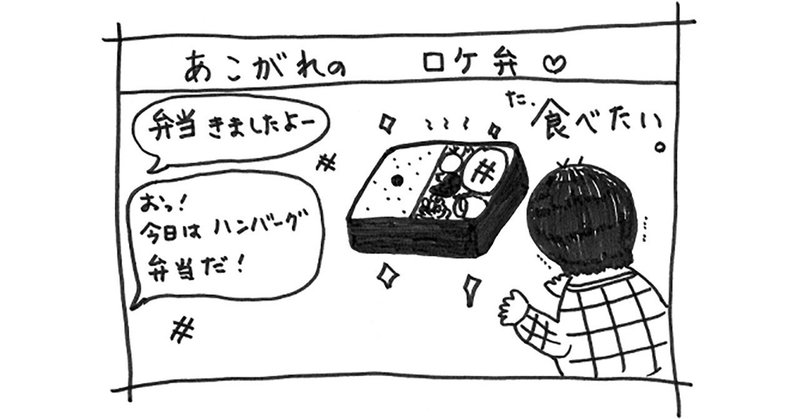 あこがれの ロケ弁♡
弁当きましたよー
おっ!
今日はハンバーグ
弁当だ!
た、食べたい。